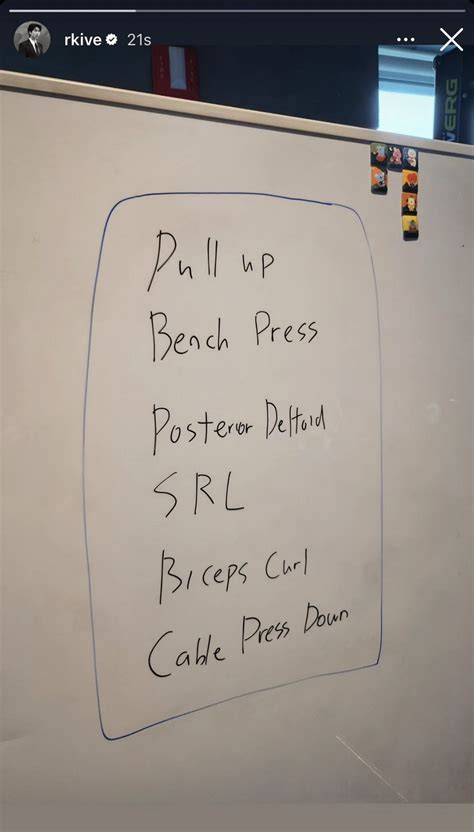 rkive 21s
VERG
Pull up
Bench Press
Posterior Deltoid
SRL
Biceps Curl
Cable Press Down